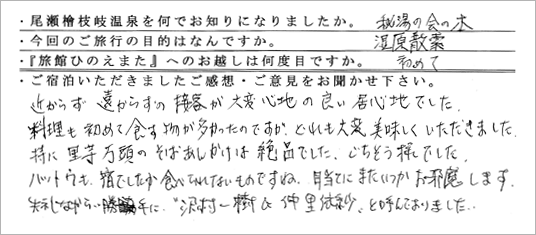 ・尾瀬檜枝岐温泉を何でお知りになりましたか。 秘湯の会の本
・今回のご旅行の目的はなんですか。 湿原散策
・『旅館ひのえまた』へのお越しは何度目ですか。 初めて
・ご宿泊いただきましたご感想・ご意見をお聞かせ下さい。
近からず遠からずの接客が大変心地の良い居心地でした。
料理も初めて食す物が多かったのですが、どれも大変美味しくいただきました。
特に里芋万頭のそばあんかけは絶品でした。ごちそう様でした。
ハットウも、宿でしか食べられないものですね。目当てにまたいつかお邪魔します。
失礼ながら、勝手に、"沢村一樹&仲里依紗"と呼んでおりました..